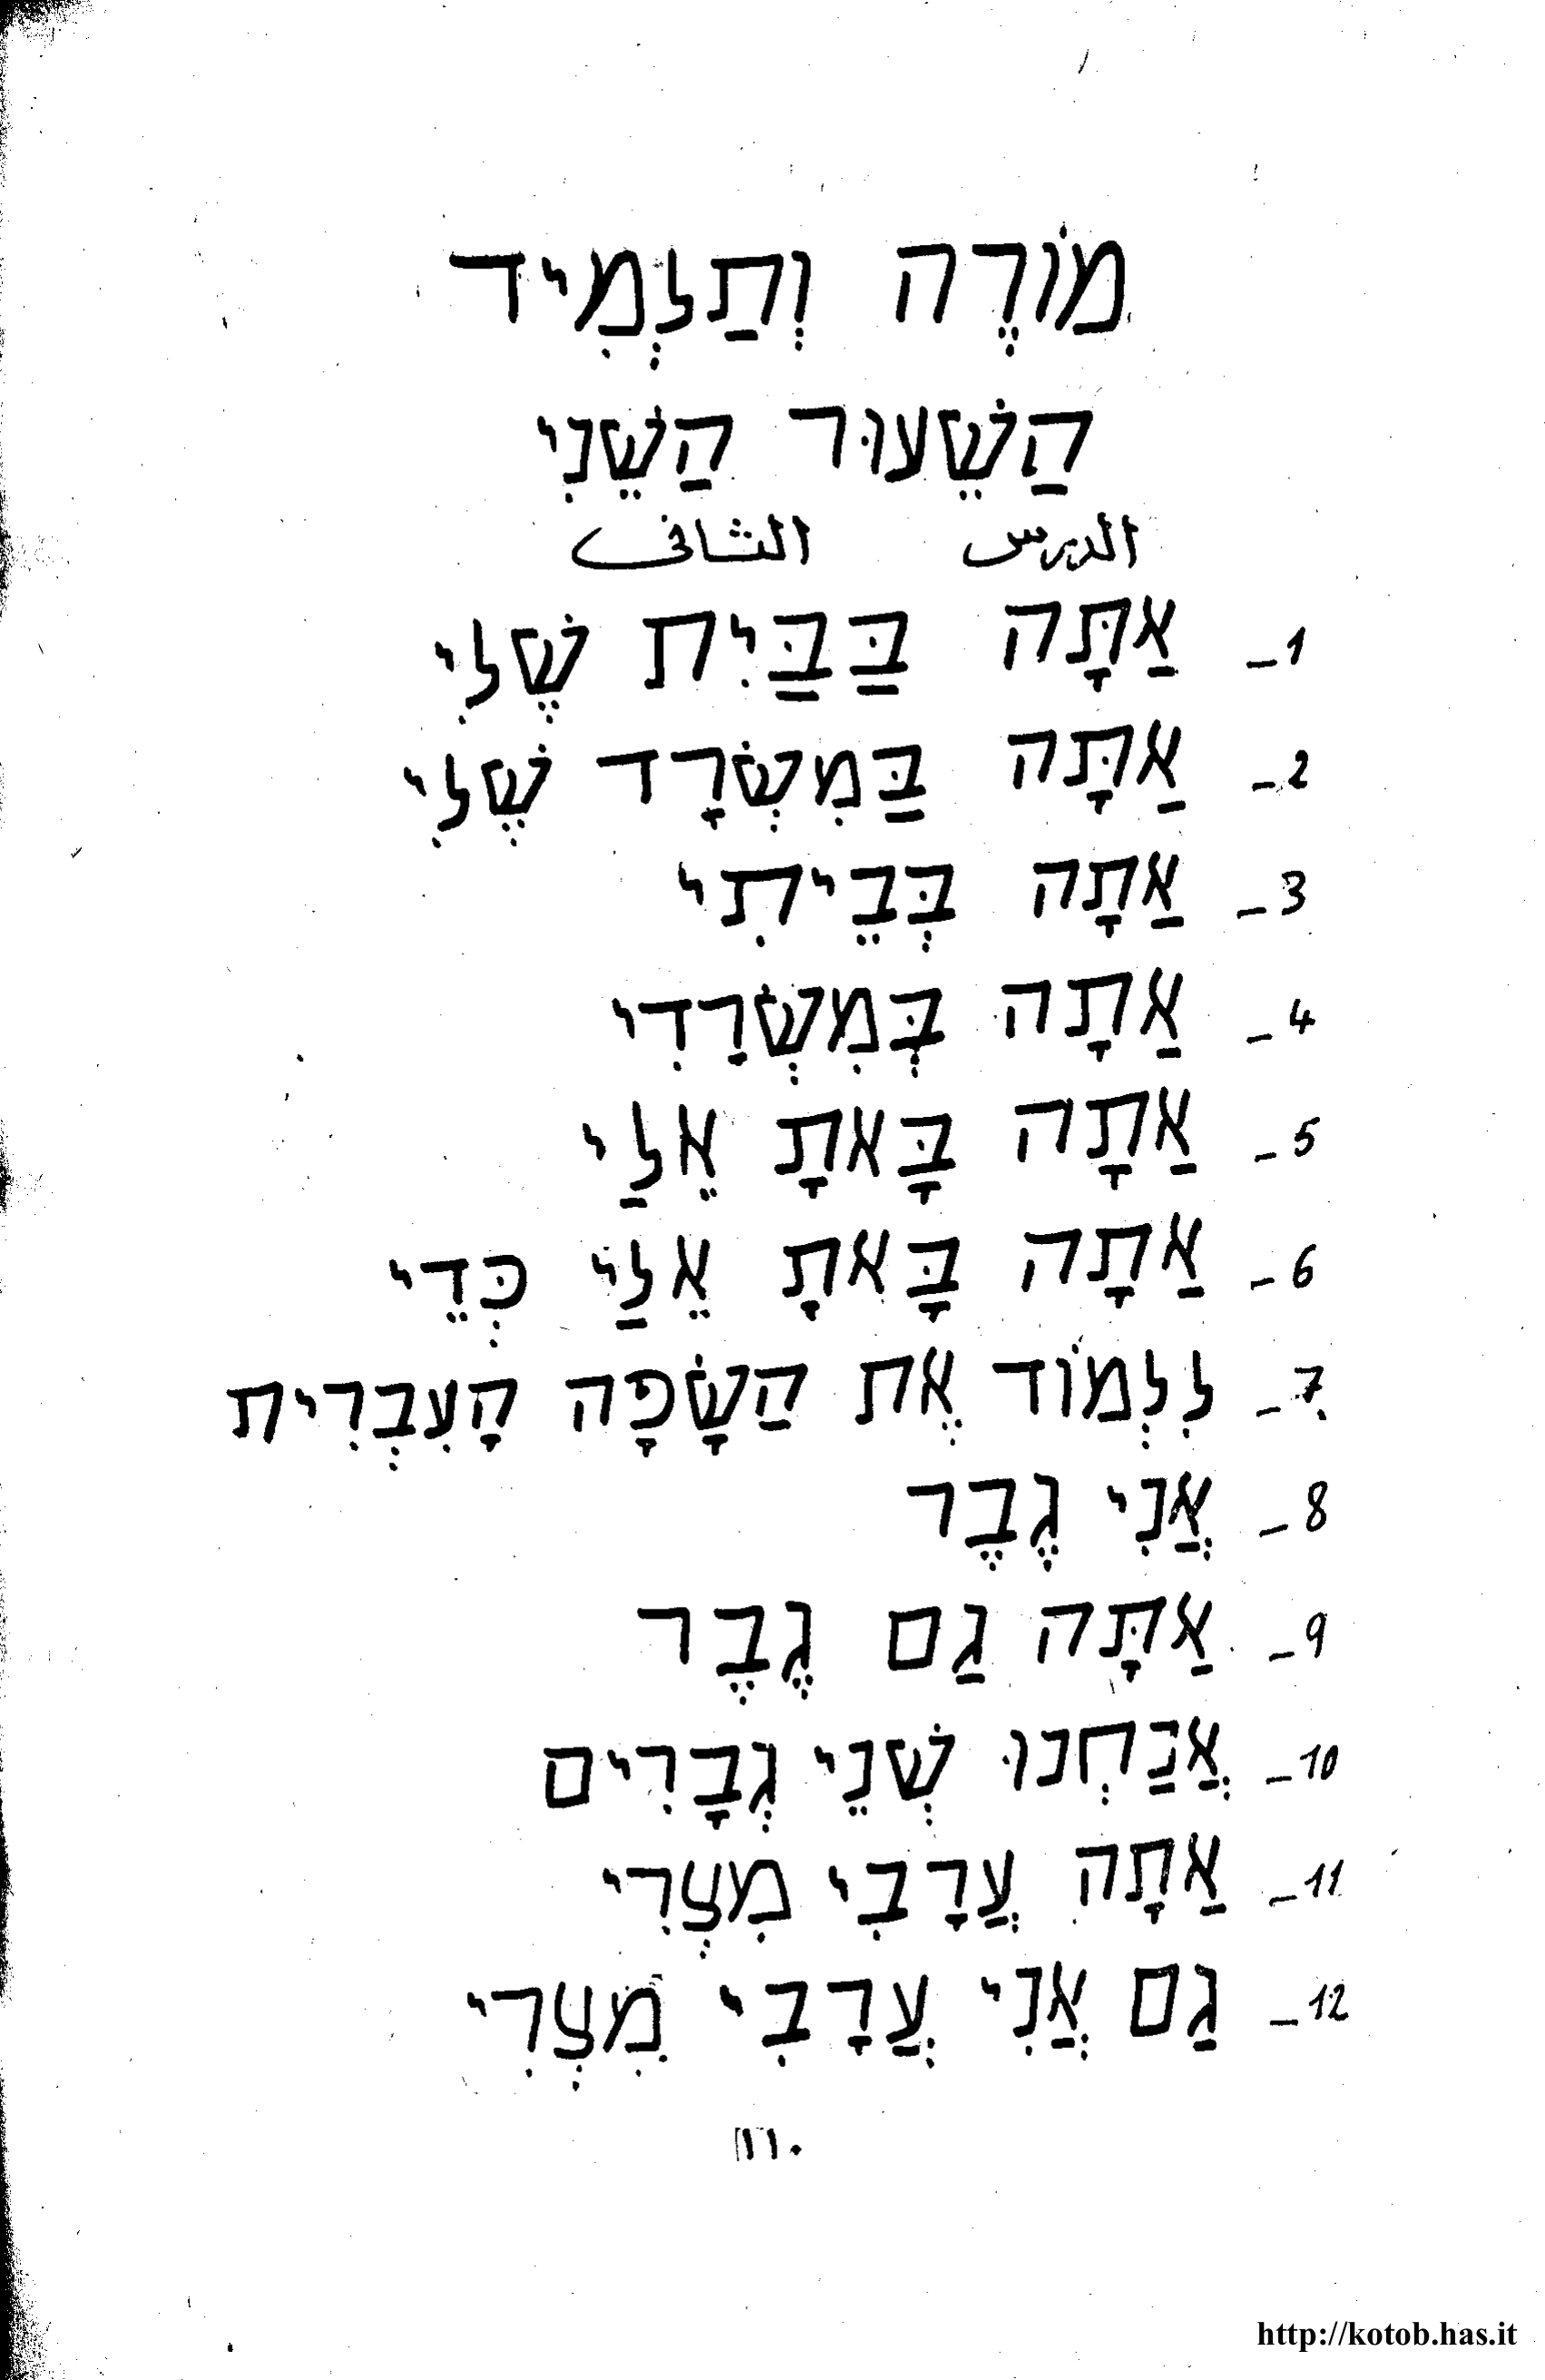 מוֹרֶה וְתַלְמִיד
הַשֵׁעוּר הַשֵׁנִי
الدرس الثانى
1_ אַתָּה בַּבַּיִת שֶׁלִי
2_ אַתָּה בַּמִשְׂרָד שֶׁלִי
3_ אַתָה בְּבֵיתִי
4_ אַתָה בְּמִשְׂרָדִי
5_ אַתָה בָּאתָ אֵלַי
6_ אַתָה בָּאתָ אֵלַי כְּדֵי
7_ לִלְמוֹד אֶת הַשָׂפָה הָעִבְרִית
8_ אֲנִי גֶבֶר
9_ אַתָּה גַם גֶבֶר
10_ אֲנַחְנוּ שְׁנֵי גְבָרִים
11_ אַתָה עֲרָבִי מִצְרִי
12_ גַם אֲנִי עֲרָבִי מִצְרִי
http://kotob.has.it